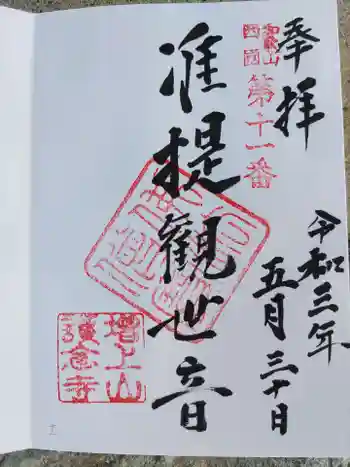 奉拝
第十一番
准提観世音
令和三年
五月三十日
増上山
護念寺